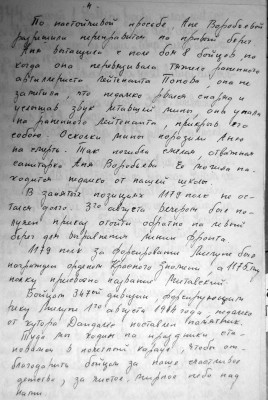 4
По настойчивой просьбе Ане Воробьевой
разрешили переправиться на правый берег
Аня вытащила с поля боя 8 бойцов, но
когда она перевязывала тяжело раненного
артиллериста лейтенанта Попова, она не
заметила, что недалеко рвался снаряд и
услышав звук летящей мины она упала
на раненного лейтенанта, прикрыв его
собою. Осколки мины поразили Аню
на смерть. Так погибла смелая отважная
санитарка Аня Воробьева. Её могила на-
ходится недалеко от нашей школы.
В занятых позициях 1179 полк не ос-
тался долго. 3го августа вечером был по-
лучен приказ отойти обратно на левый
берег для выравнения линии фронта
1179 полк за форсирование Лиелупе был
награжден орденом Красного Знамени, а 1175му
полку присвоено название Митавский.
Бойцам 347ой дивизии, форсирующим
реку Лиелупе 1го августа 1944 года, недалеко
от хутора Дандалес поставлен памятник.
Туда мы ходим на праздники ста-
новимся в почетный караул, чтобы от-
благодарить бойцов за наше счастливое
детство, за чистое, мирное небо над
нами.